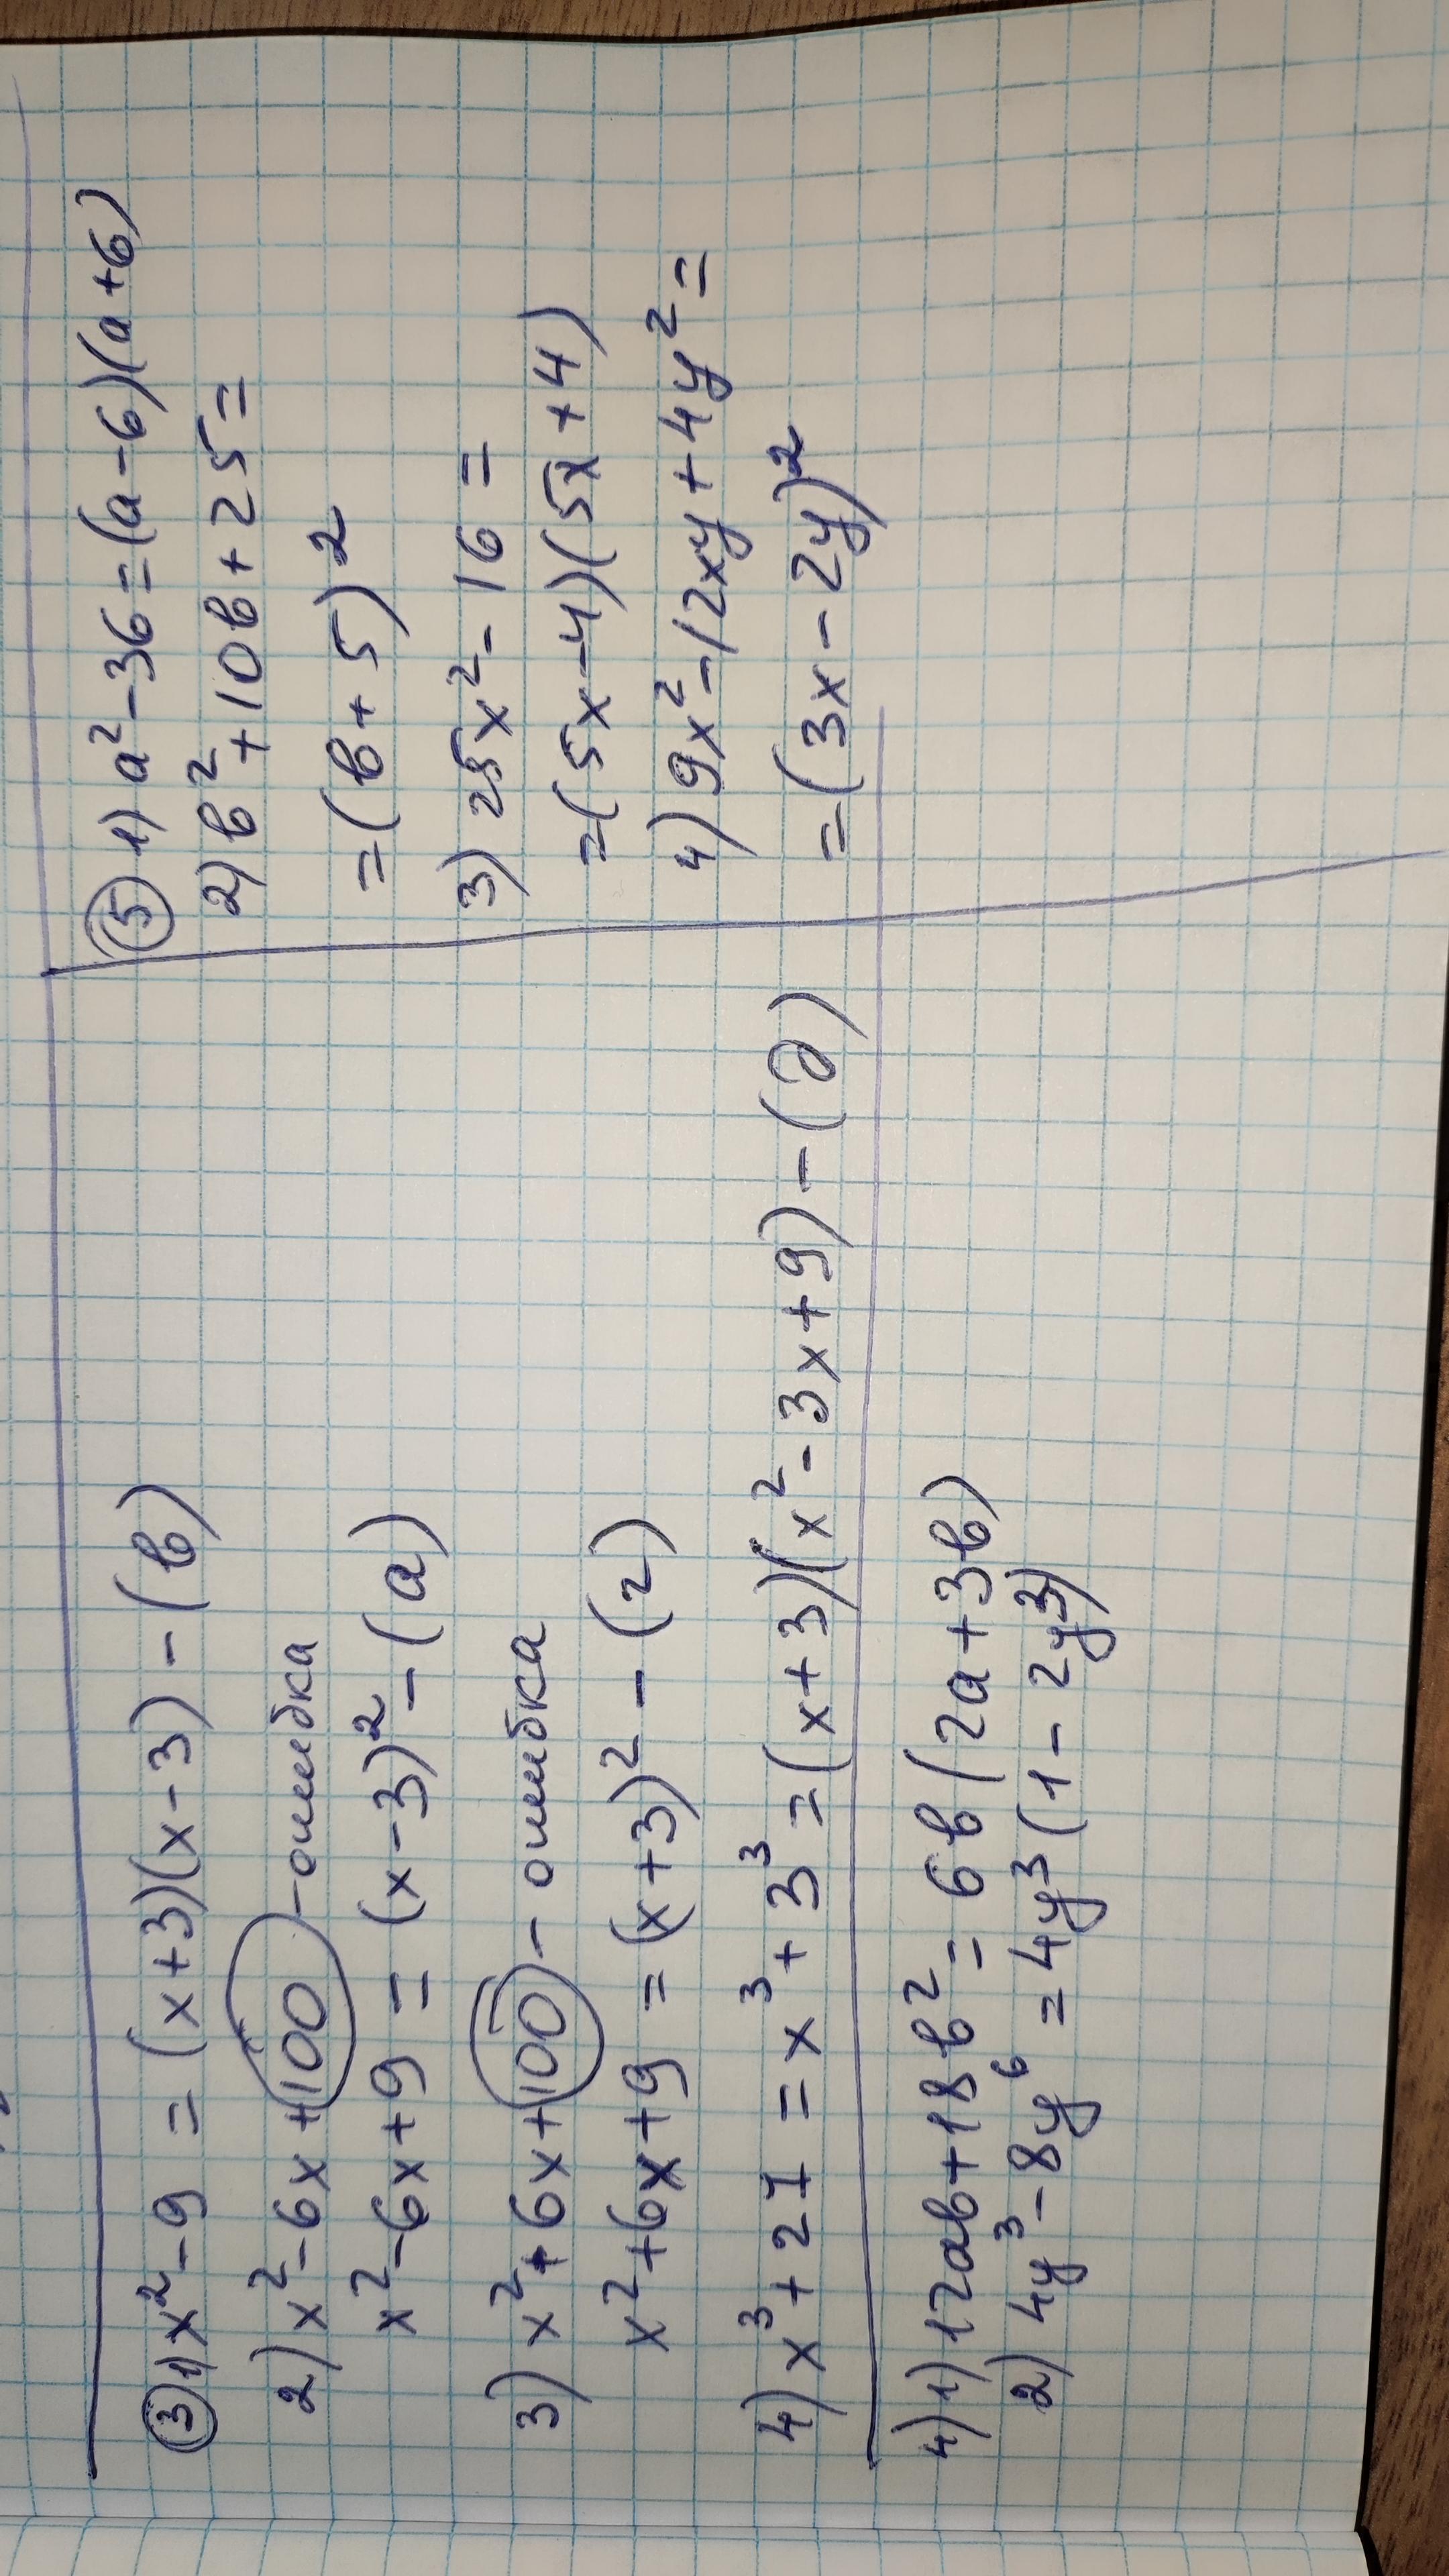 ③ 1) x² - 9 = (x+3)(x-3) - (в)
2) x² - 6x + 100 - ошибка
x² - 6x + 9 = (x-3)² - (а)
3) x² + 6x + 100 - ошибка
x² + 6x + 9 = (x+3)² - (г)
4) x³ + 27 = x³ + 3³ = (x+3)(x² - 3x + 9) - (д)
4) 1) 12ав + 18в² = 6в(2а + 3в)
2) 4y³ - 8y⁶ = 4y³(1 - 2y³)
⑤ 1) a² - 36 = (a-6)(a+6)
2) в² + 10в + 25 =
= (в + 5)²
3) 25x² - 16 =
= (5x-4)(5x+4)
4) 9x² - 12xy + 4y² =
= (3x - 2y)²